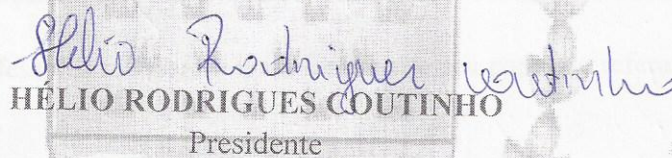 Hélio Rodrigues Coutinho
HÉLIO RODRIGUES COUTINHO
Presidente